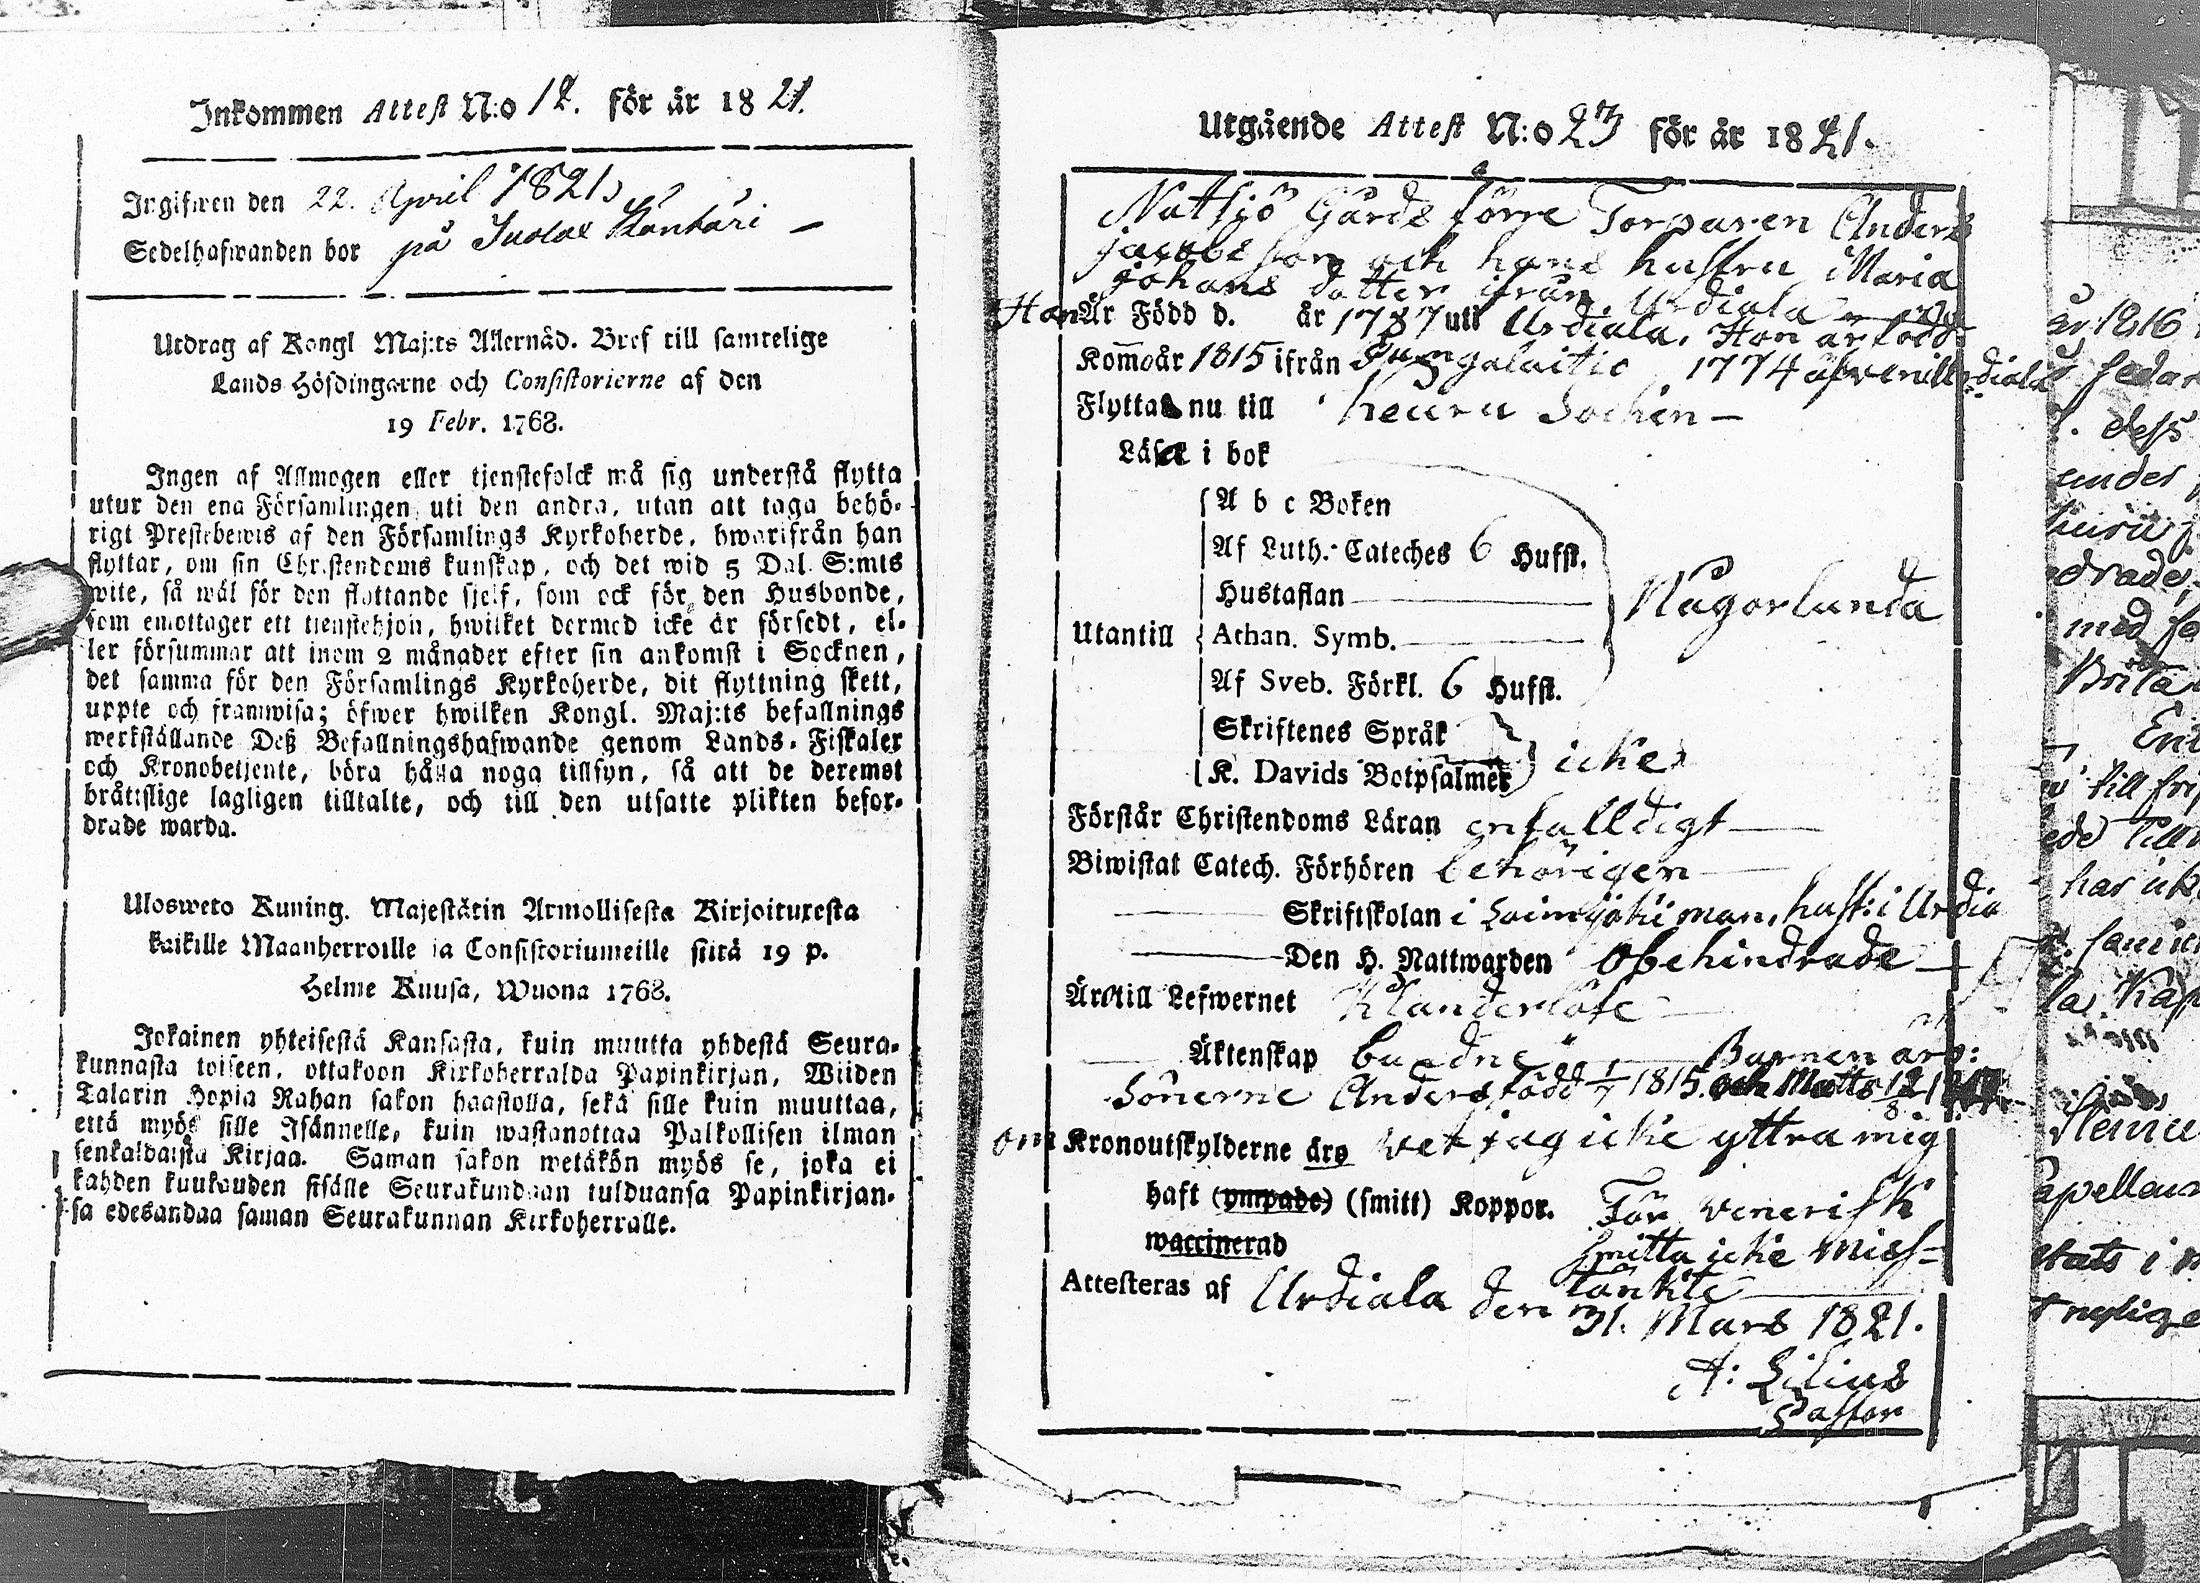 Inkommen Attest N:o 12. för år 1821.
Ingifwen den 22. April 1821
Sedelhafwanden bor på
Utdrag af Kongl Maj:ts Allernåd. Bref till samtelige
Lands Höfdingarne och Consistorierne af den
19 Febr. 1768.
Ingen af Allmogen eller tjenstefolck må sig understå flytta
utur den ena Församlingen uti den andra, utan att taga behö-
rigt Prestebewis af den Församlings Kyrkoherde, hwarifrån han
flyttar, om sin Christendoms kunskap, och det wid 5 Dal. S:mts
wite, så wäl för den flyttande sjelf, som ock för den Husbonde,
som emottager ett tienstehjon, hwilket dermed icke är försedt, el-
ler försummar att inom 2 månader efter sin ankomst i Socknen,
det samma för den Församlings Kyrkoherde, dit flyttning skett,
uppte och framwisa; öfwer hwilken Kongl. Maj:ts befallnings
werkställande Deß Befallningshafwande genom Lands-Fiskaler
och Kronobetjente, böra hålla noga tillsyn, så att de deremot
bråttslige lagligen tilltalte, och till den utsatte plikten befor-
drade warda.
Ulosweto Kuning. Majestätin Armollisesta Kirjoituxesta
kaikille Maanherroille ja Consistoriumeille siitä 19 p.
Helme Kuusa, Wuona 1768.
Jokainen yhteisestä Kansasta, kuin muutta yhdestä Seura-
kunnasta toiseen, ottakoon Kirkoherralda Papinkirjan, Wiiden
Talarin Hopia Rahan sakon haastolla, sekä sille kuin muuttaa,
että myös sille Isännelle, kuin wastanottaa Palkollisen ilman
senkaldaista Kirjaa. Saman sakon wetäkön myös se, joka ei
kahden kuukauden sisälle Seurakundaan tulduansa Papinkirjan-
sa edesandaa saman Seurakunnan Kirkoherralle.
Utgående Attest N:o 23 för år 1821.
Nutsjö Gårds förre Torparen Anders
Jacobsson och hans hustru Maria
Johans dotter ifrån Urdiala
Han Är Född d. år 1787 uti Urdiala, Hon är född
Kom̄o år 1815 ifrån 1774 äfven i Urdiala
Flytta nu till Socken
Läsa i bok
A b c Boken
Af Luth. Cateches 6 Hufst.
Hustaflan
Någorlunda
Utantill
Athan. Symb.
Af Sveb. Förkl. 6 Hufst.
Skriftenes Språk
icke
K. Davids Botpsalmer
Förstår Christendoms Läran enfalldigt
Biwistat Catech. Förhören behörigen
Skriftskolan i Loimijoki man, hust: i Urdia
Den H. Nattwarden Obehindrade
Äro till Lefwernet Klanderlöse
Äktenskap bundne Barnen äro:
Sönerne Anders född 1/7 1815. och Matts
om Kronoutskylderne äro vet jag icke yttra mig
haft (ympade) (smitt) Koppor. För venerisk
waccinerad smitta icke miss=
tänkte
Attesteras af Urdiala den 31. Mars 1821.
A: Lilius
Pastor